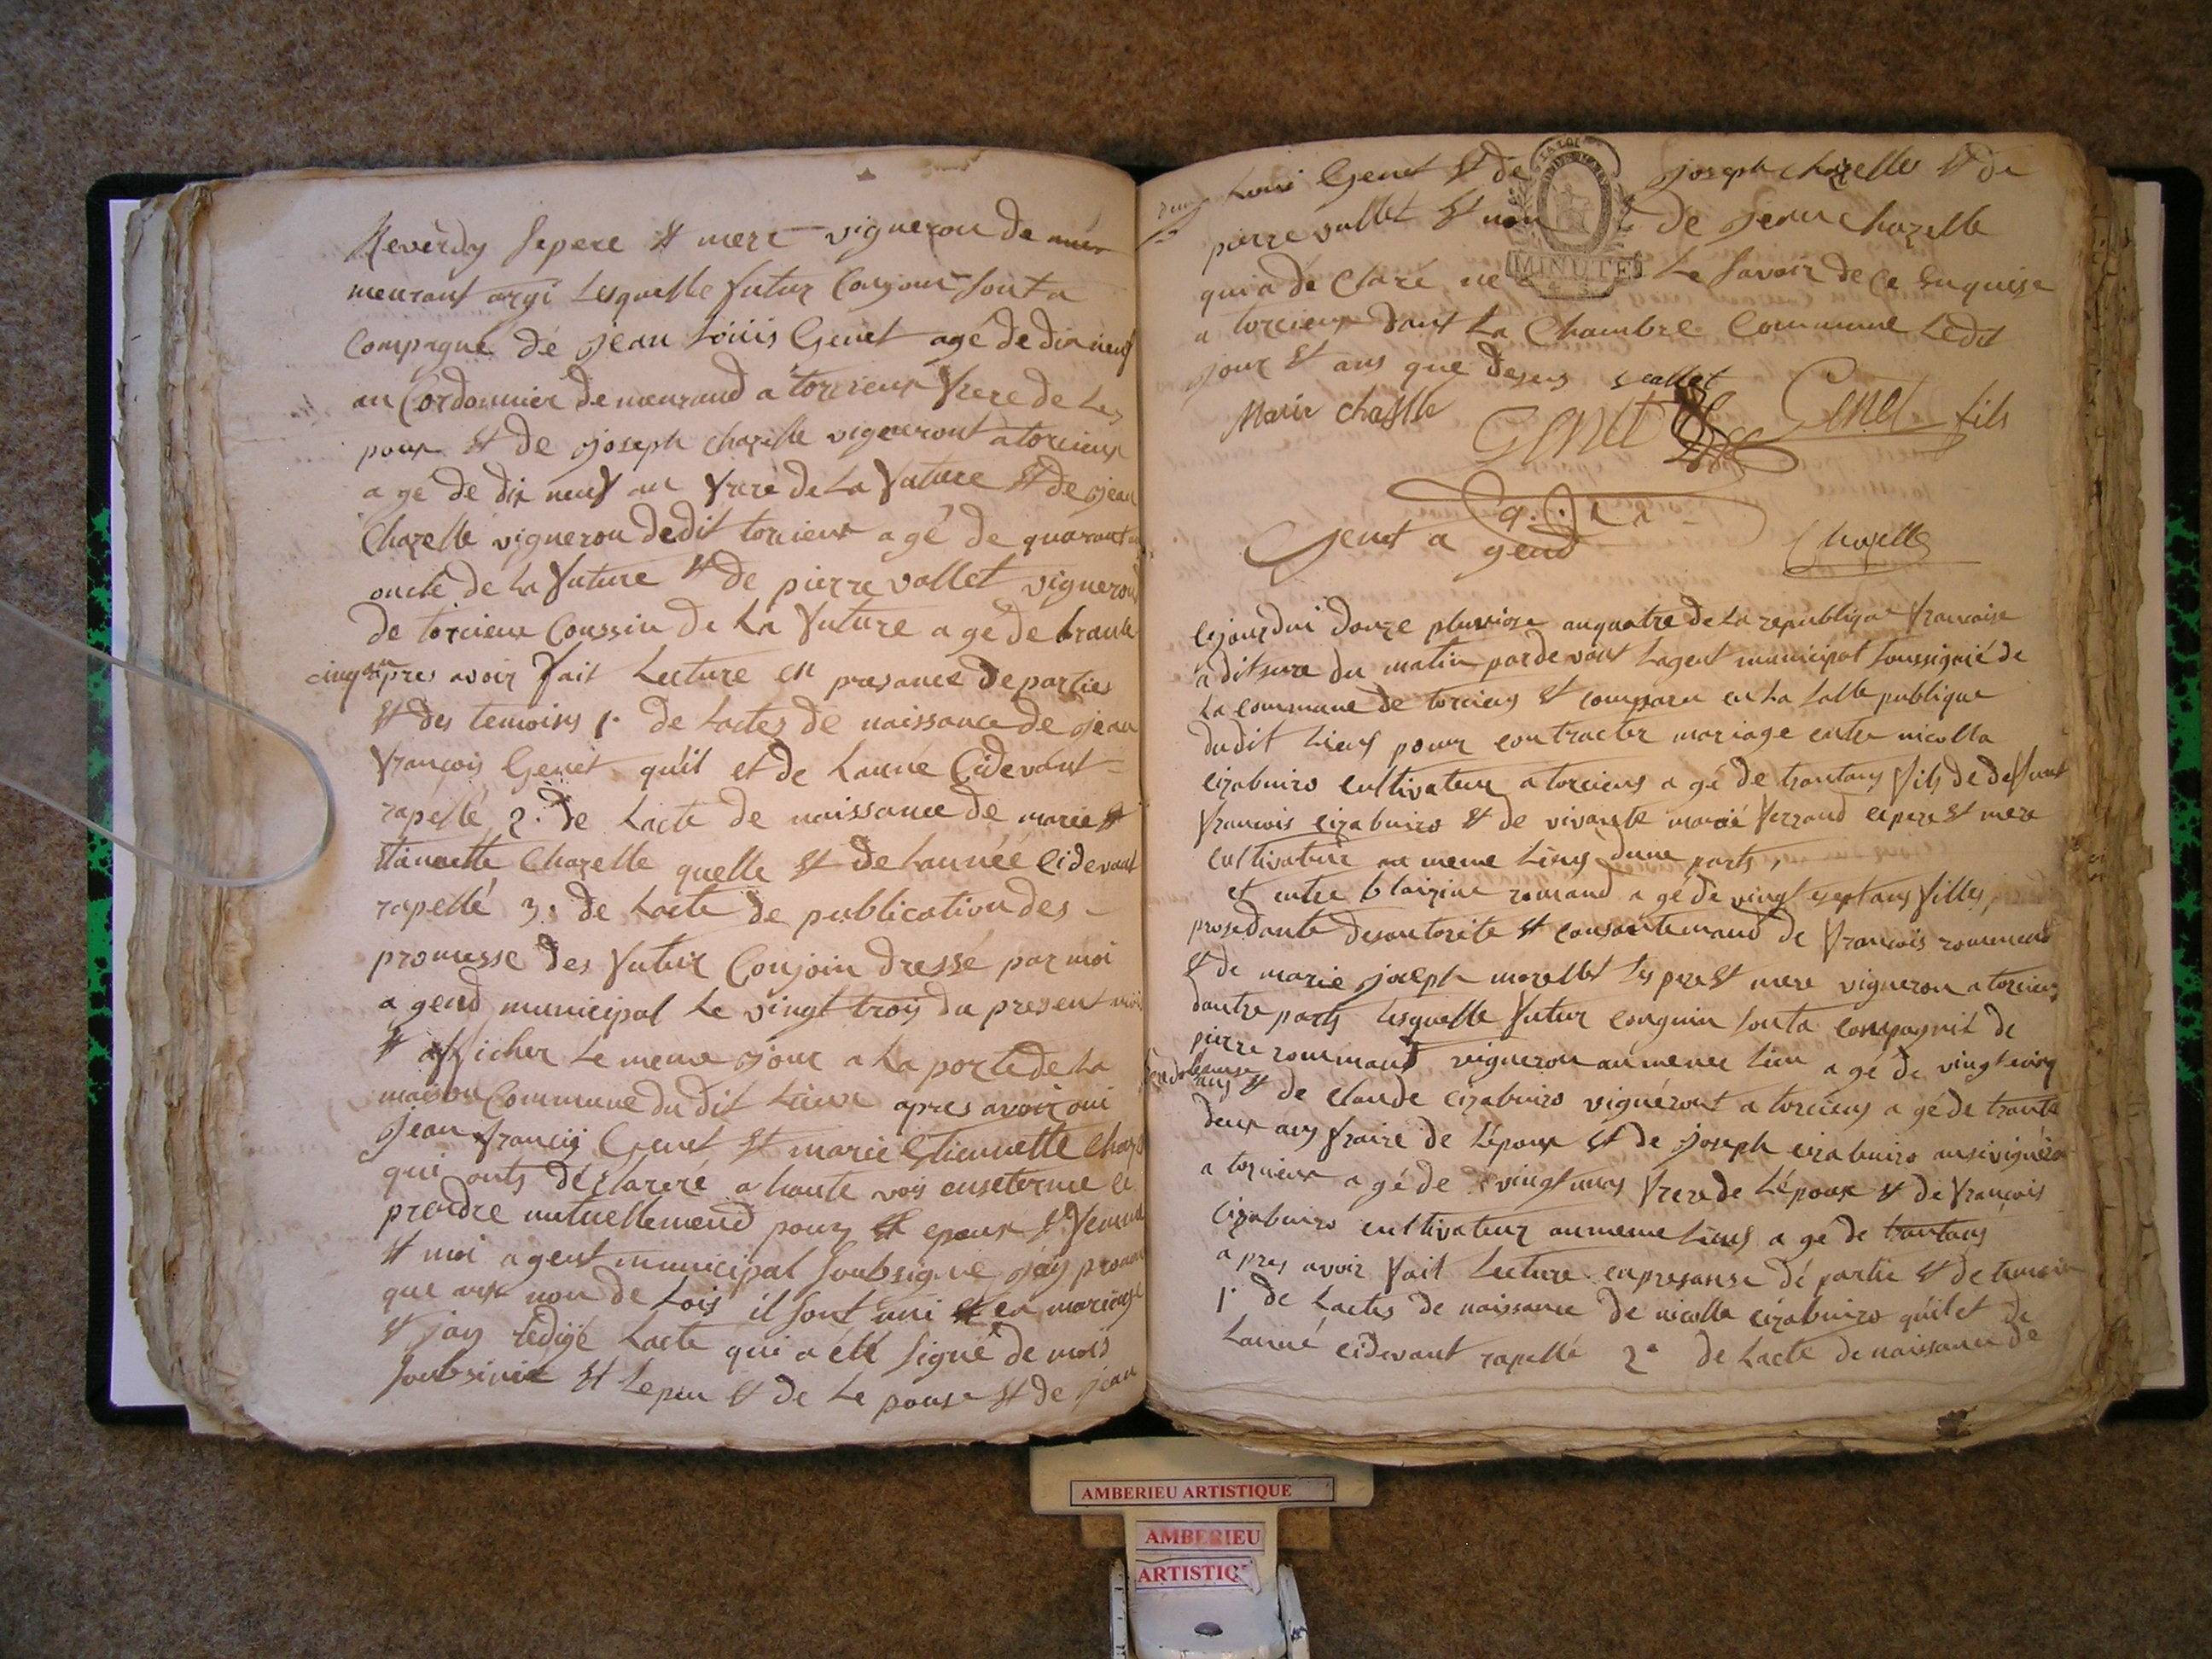 Reverdy se pere et mere vigneron de
meurant argi Lesquelle futur Conjoin sont a
Compagne dé jean Loüis Genet agé de dix neuf
an Cordonnier demeurand a torcieux frere de Le
poux et de joseph chazelle vigneront a torcieux
a gé de dix neuf an frere de La future et de jean
Chazelle vigneron dedit torcieux a gé de quarante
oncle de La future et de pierre vallet vigneron
de torcieux Coussin de La future a gé de trante
cinq an apres avoir fait Lecture en presance de parties
et des temoins 1. de Lactes de naissance de jean
françois Genet qu'il et de Lanné Cidevant
rapellé 2. de Lacte de naissance de marie
Etiennette Chazelle quelle et de Lannéé Cidevant
rapellé 3. de Lacte de publication des
promesse des futur Conjoin dressé par moi
a gend municipal Le vingt trois du present moi
et afficher Le meme jour a La porte de La
maison Commune du dit Lieux apres avoir oui
jean francois Genet et marie Etiennette Chaz
qui onts déclareré a haute vois
prendre mutuellemend pour epoux et femme
et moi agent municipal soubsigné j'ay
que aux non de Lois il sont uni en mariage
et jay rédigé Lacte qui a été signé de mois
soubsinié et Lepou et de Le pouse et de jean
Loui Genet et de joseph chazelle et de
pierre vallet et non de jean Chazelle
qui a dé Claré ne Le savoir de ce enquise
a torcieux dant La Chambre Commune Ledit
jour et ans que desus vallet
LA LOI
MINUTE
Marie chaselle Genet Genet fils
Genet a gend Chazelle
Cejourdui douze pluviose anquatre de La republique francaise
a dix eure du matin par de vant Lagent municipal soussignié de
La commune de torcieux et comparu en La salle publique
dudit Lieux pour contracter mariage entre nicolla
cizabuiro cultivateur a torcieux a gé de trantans fils de deffunt
francois cizabuiro et de vivante marié ferrand ce pere et mere
cultivature au meme Lieux dune parts,
et entre blaizine romand a gé de vingt septans filles
prosedante desautorite et consantemand de francois rommand
et de marie joseph morellet ses per et mere vigneron a torcieux
dautre parts Lesquelle futur conguin sont a compagnié de
pierre rommand vigneron au meme Lieu a gé de vingt cinq
ans et de claude cizabuiro vignéront a torcieux a gé de trante
deux ans fraire de Lépoux et de joseph cizabuiro
a torcieux a gé de vingt ans frere de Lépoux et de francois
cizabuiro cultivateur au meme Lieux a gé de trantans
apres avoir fait Lecture en presanse dé partie et de temoin
1. de Lactes de naissance de nicolla cizabuiro quil et de
Lanné cidevant rapellé 2. de Lacte de naissance de
AMBERIEU ARTISTIQUE
AMBERIEU
ARTISTIQ